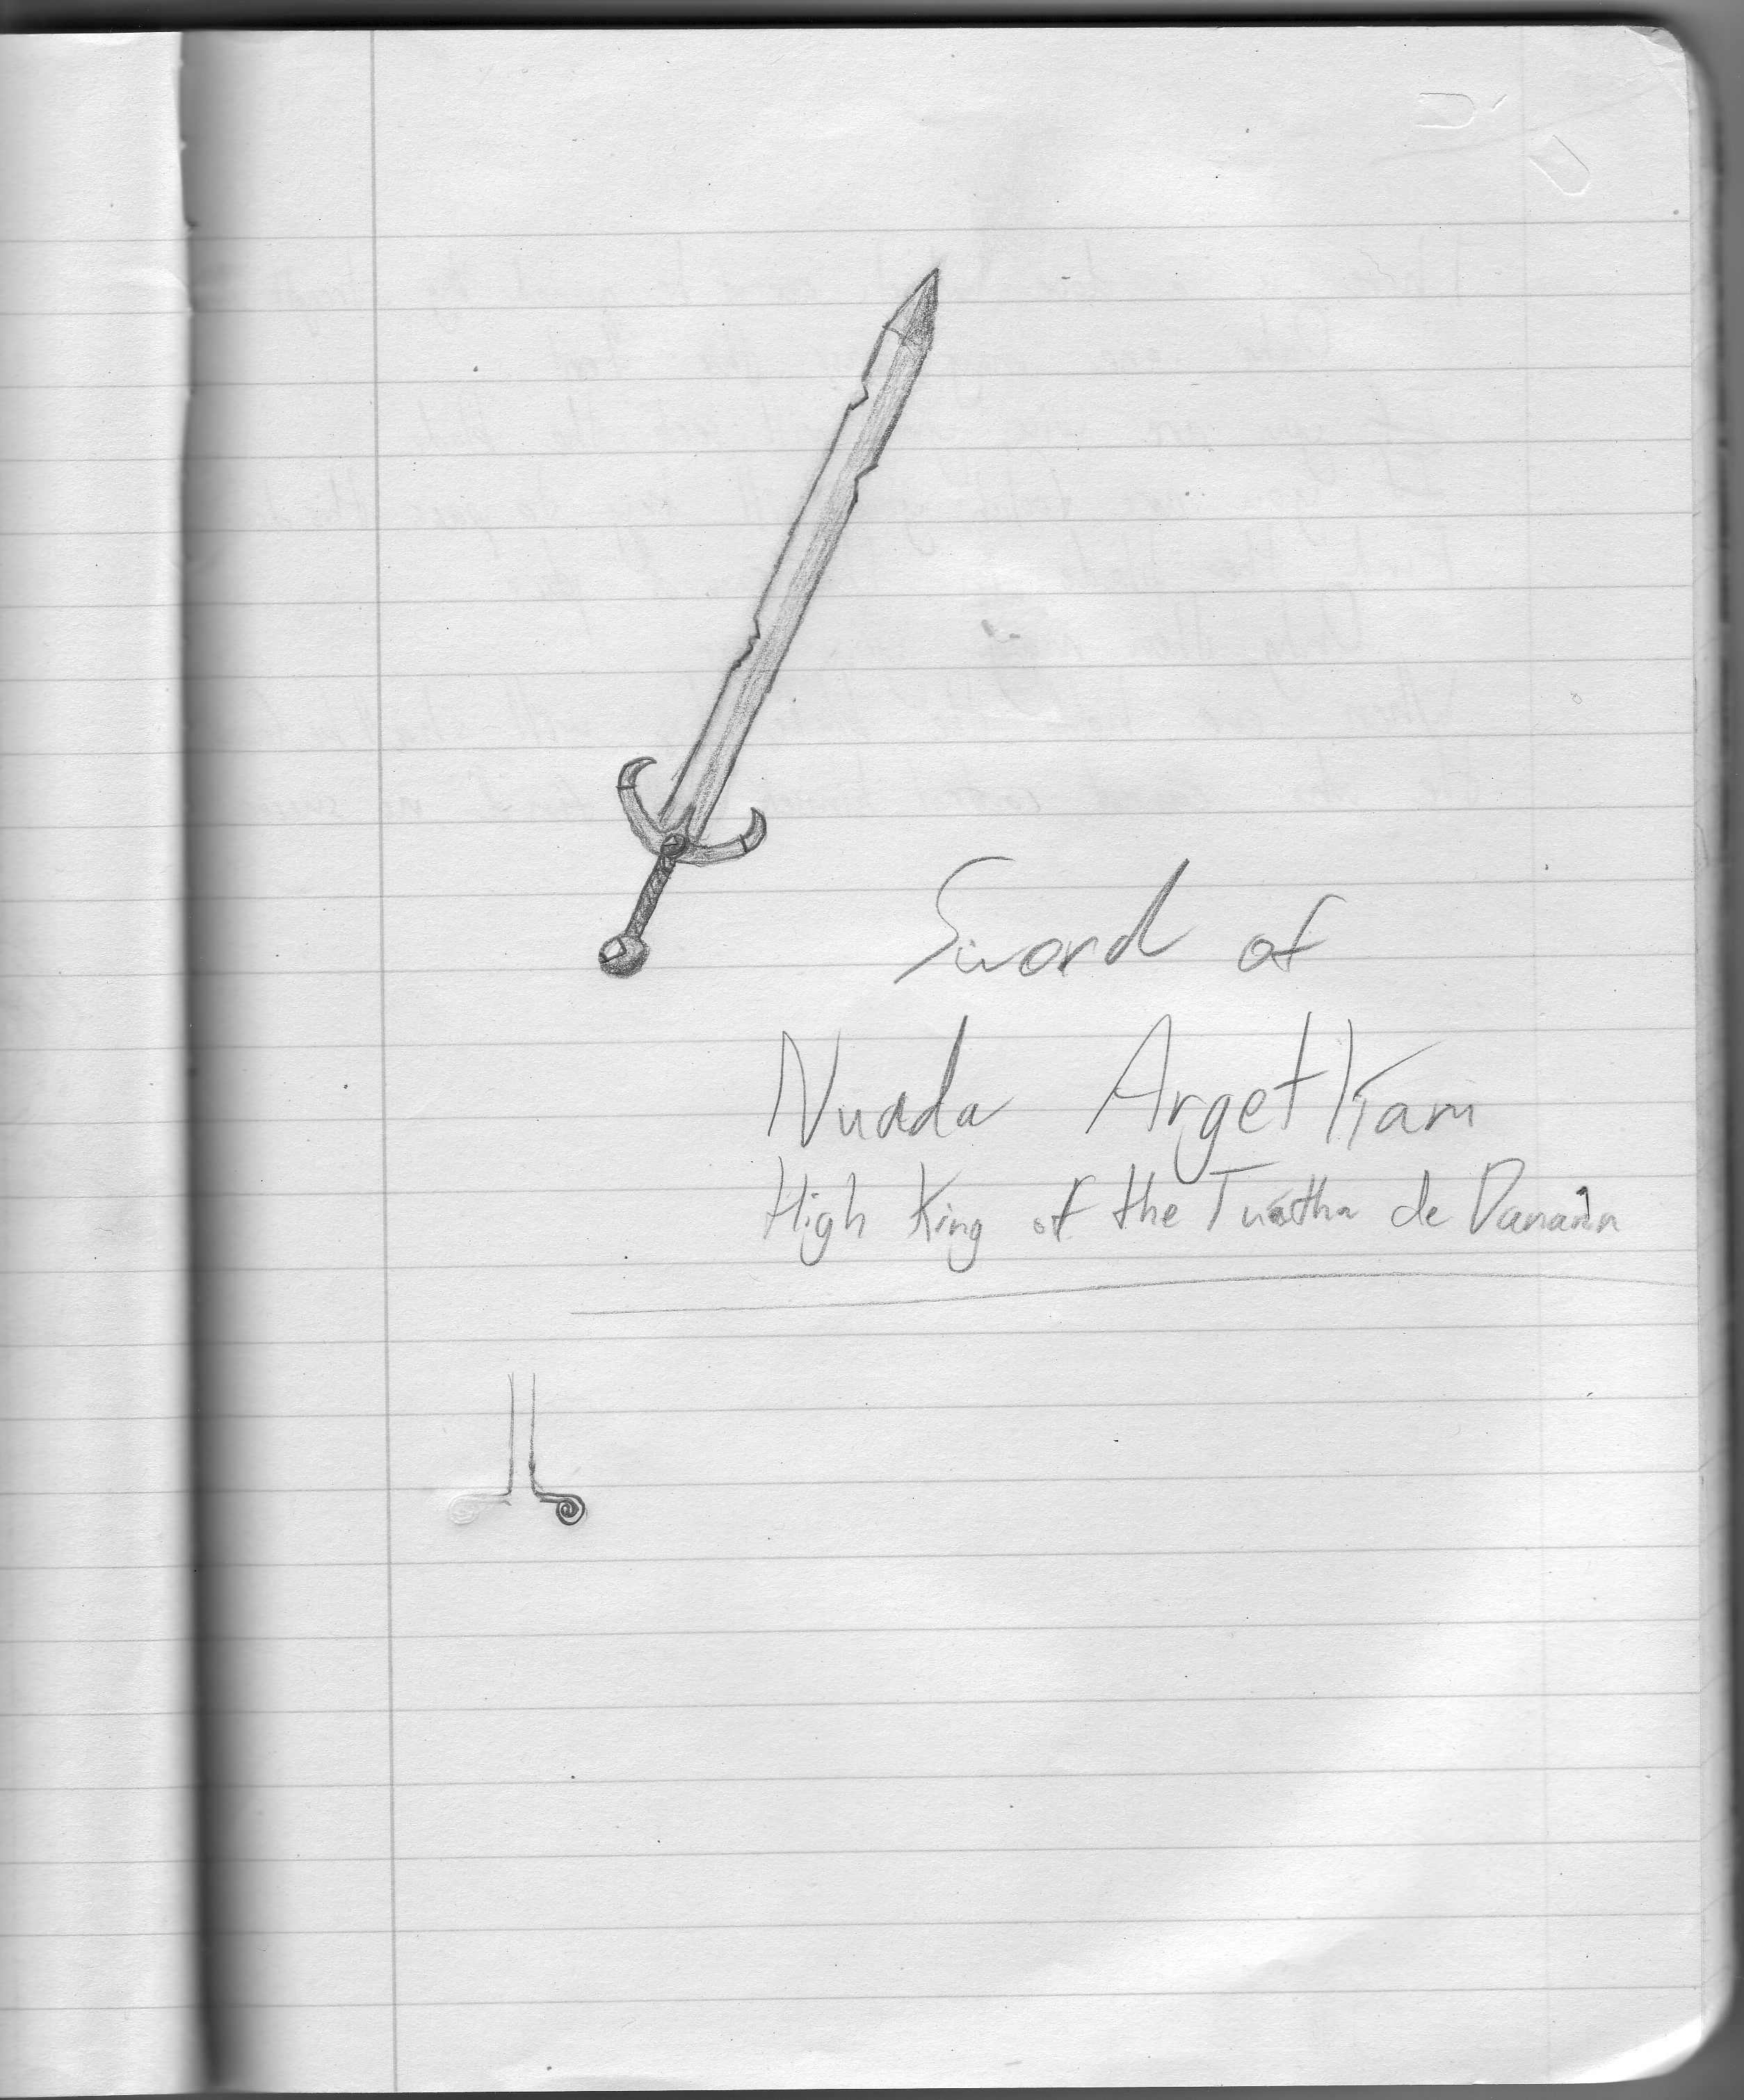 Sword of
Nuada Argetlíam
High King of the Tuatha de Danann